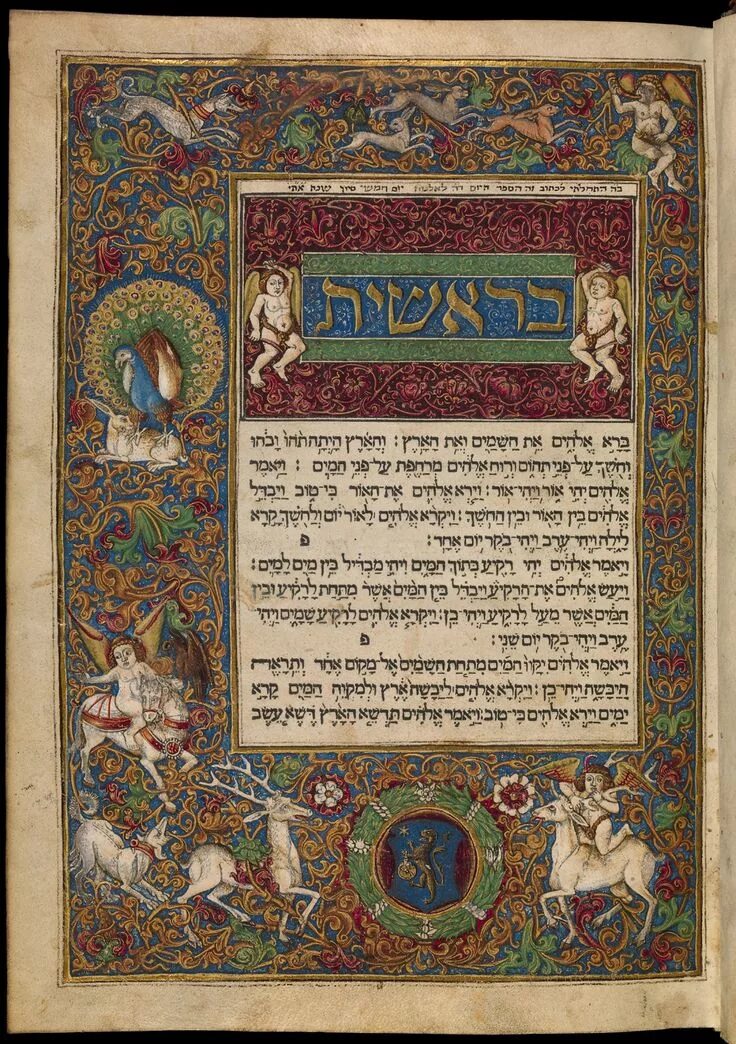 התחלתי לכתוב זה הספר היום יום חמשי סיון שנת
בראשית
בָּרָא אֱלֹהִים אֵת הַשָּׁמַיִם וְאֵת הָאָרֶץ׃ וְהָאָרֶץ הָיְתָה תֹהוּ וָבֹהוּ
וְחֹשֶׁךְ עַל־פְּנֵי תְהוֹם וְרוּחַ אֱלֹהִים מְרַחֶפֶת עַל־פְּנֵי הַמָּיִם׃ וַיֹּאמֶר
אֱלֹהִים יְהִי אוֹר וַיְהִי־אוֹר׃ וַיַּרְא אֱלֹהִים אֶת־הָאוֹר כִּי־טוֹב וַיַּבְדֵּל
אֱלֹהִים בֵּין הָאוֹר וּבֵין הַחֹשֶׁךְ׃ וַיִּקְרָא אֱלֹהִים לָאוֹר יוֹם וְלַחֹשֶׁךְ קָרָא
לָיְלָה וַיְהִי־עֶרֶב וַיְהִי־בֹקֶר יוֹם אֶחָד׃ פ
וַיֹּאמֶר אֱלֹהִים יְהִי רָקִיעַ בְּתוֹךְ הַמָּיִם וִיהִי מַבְדִּיל בֵּין מַיִם לָמָיִם׃
וַיַּעַשׂ אֱלֹהִים אֶת־הָרָקִיעַ וַיַּבְדֵּל בֵּין הַמַּיִם אֲשֶׁר מִתַּחַת לָרָקִיעַ וּבֵין
הַמַּיִם אֲשֶׁר מֵעַל לָרָקִיעַ וַיְהִי־כֵן׃ וַיִּקְרָא אֱלֹהִים לָרָקִיעַ שָׁמָיִם וַיְהִי־
עֶרֶב וַיְהִי־בֹקֶר יוֹם שֵׁנִי׃ פ
וַיֹּאמֶר אֱלֹהִים יִקָּווּ הַמַּיִם מִתַּחַת הַשָּׁמַיִם אֶל־מָקוֹם אֶחָד וְתֵרָאֶה
הַיַּבָּשָׁת וַיְהִי־כֵן׃ וַיִּקְרָא אֱלֹהִים לַיַּבָּשָׁה אֶרֶץ וּלְמִקְוֵה הַמַּיִם קָרָא
יַמִּים וַיַּרְא אֱלֹהִים כִּי־טוֹב׃ וַיֹּאמֶר אֱלֹהִים תַּדְשֵׁא הָאָרֶץ דֶּשֶׁא עֵשֶׂב